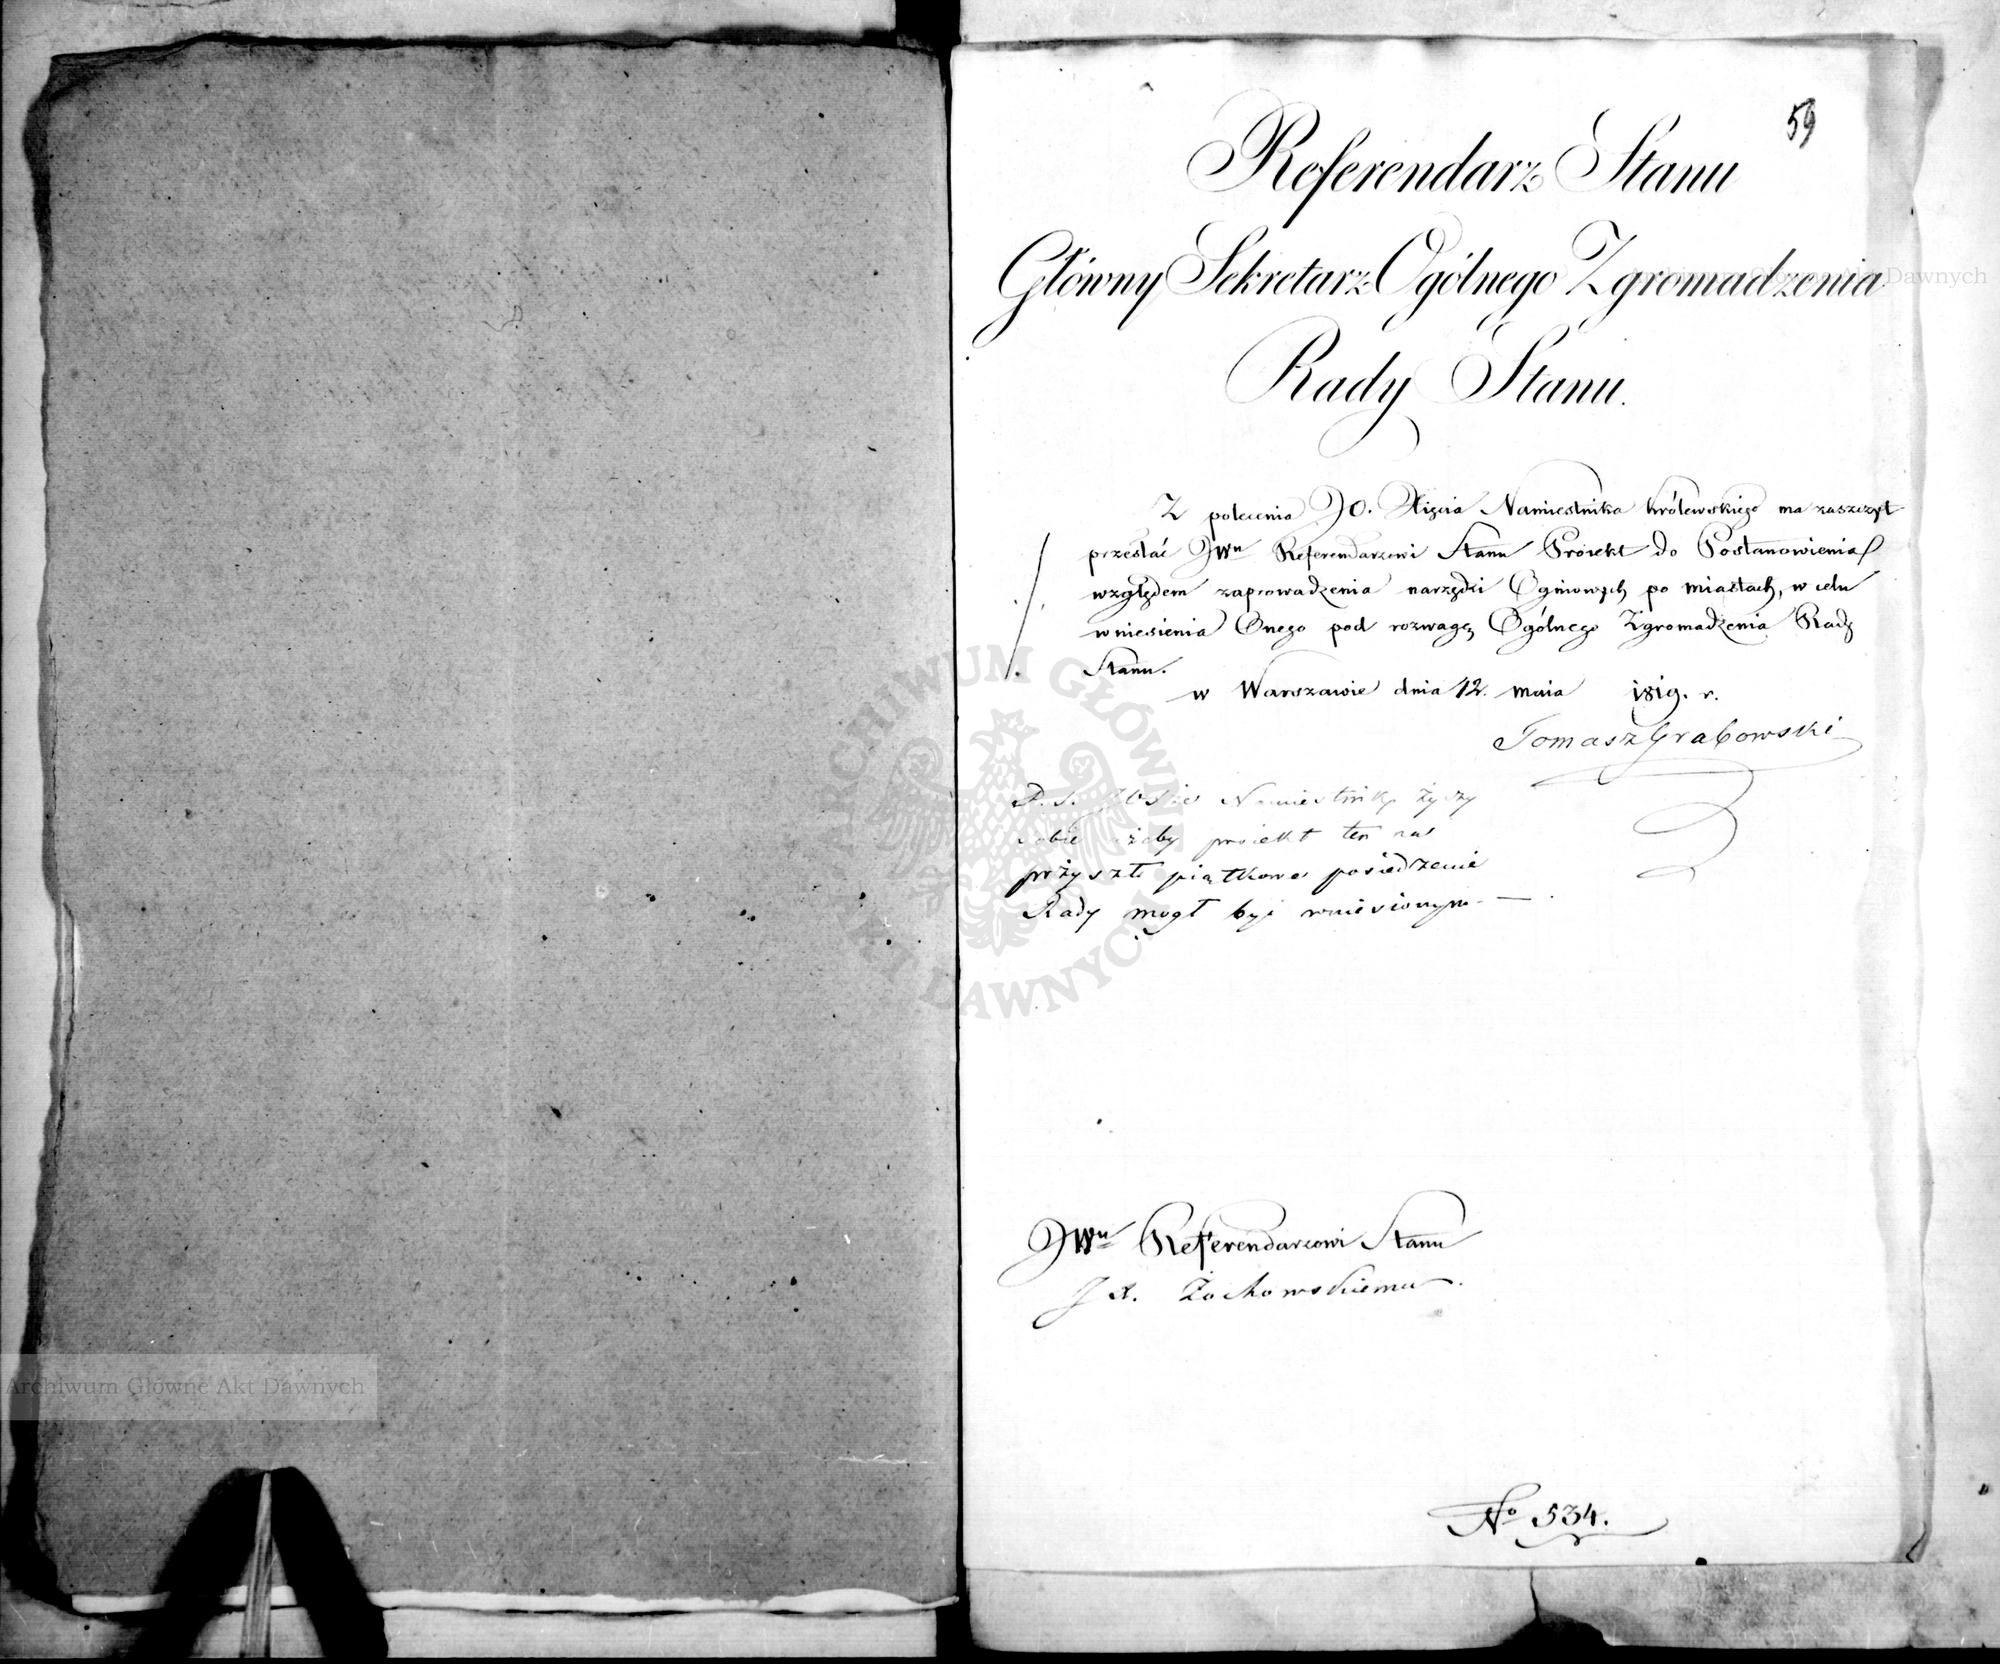 59
Referendarz Stanu
Główny Sekretarz Ogólnego Zgromadzenia
Rady Stanu.
Z polecenia JO. Xięcia Namiestnika Królewskiego ma zaszczyt
przesłać JWu Referendarzowi Stanu Proiekt do Postanowienia
względem zaprowadzenia narzędzi Ogniowych po miastach, w celu
wniesienia Onego pod rozwagę Ogólnego Zgromadzenia Rady
Stanu.
w Warszawie dnia 12. maia 1819. r.
Tomasz Grabowski
P. S. Xże Namiestnik życzy
sobie ażeby proiekt ten na
przyszłe piątkowe posiedzenie
Rady mógł być wniesionym. —
JWu Referendarzowi Stanu
J X. Żochowskiemu.
No 534.
Archiwum Główne Akt Dawnych
Archiwum Główne Akt Dawnych
ARCHIWUM GŁÓWNE AKT DAWNYCH